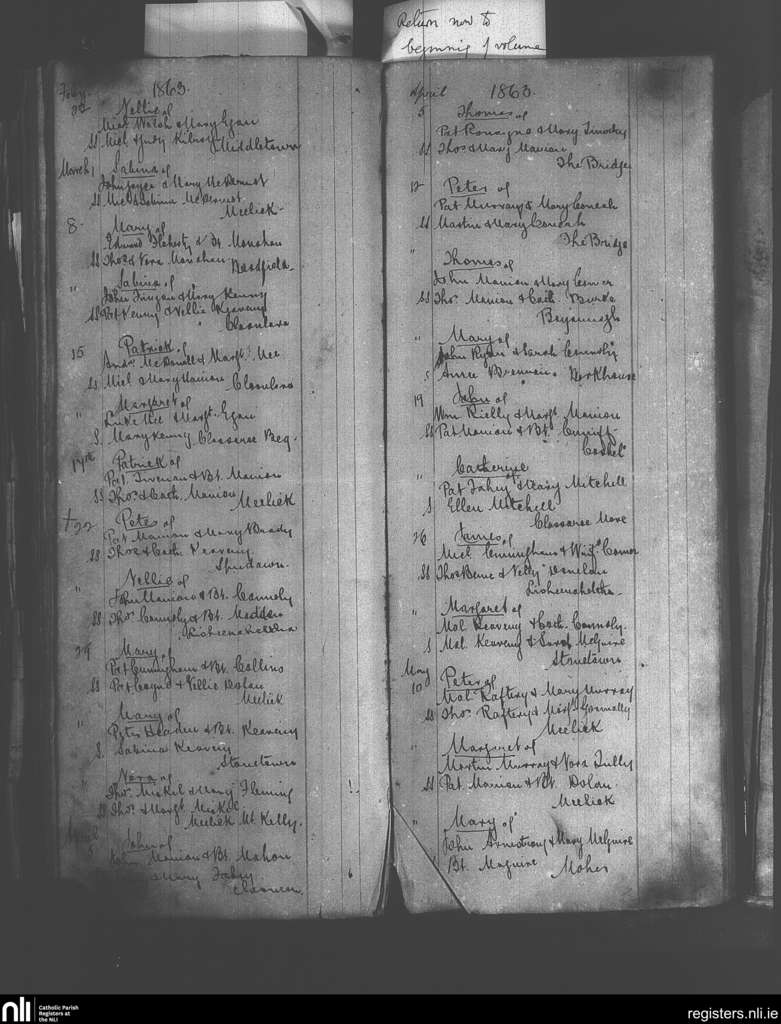 Return now to
beginning of volume
Feby. 1863.
Nellie of
Mich Walsh & Mary Egan
SS Micl & Judy Kilroy
Middletown
March 1 Sabina of
John Joyce & Mary McDermot
SS Micl & Sabina McDermot
Meelick
8 Mary of
Edward Flaherty & Bt. Monahan
SS Thos & Nora Monahan
" Sabina of
John Fingan & Mary Kenny
SS Pat Kenny & Nellie Keaveny
Cloonlara
15 Patrick of
Andw McDonnell & Margt. Nee
SS Micl & Mary Manion Cloonlara
" Margaret of
Luke Nee & Margt. Egan
S. Mary Kenny Cloonaree Beg.
17th Patrick of
Pat. & Bt. Manion
SS Thos & Cath. Manion
Meelick
22 Peter of
Pat Manion & Mary Brady
SS Thos & Cath. Keaveny
" Nellie of
John Manion & Bt. Connoly
SS Thos Connoly & Bt. Madden
29 Mary of
Pat Cunningham & Bt. Collins
SS Pat Coyne & Nellie Dolan
Meelick
" Mary of
Peter Headen & Bt. Keaveny
S. Sabina Keaveny
Stonetown
" Nora of
Thos. Miskel & Mary Fleming
SS Thos & Margt Miskel
Meelick Mt Kelly.
April 5 John of
John Manion & Bt. Mahon
& Mary Fahy
April 1863.
5 Thomas of
Pat Ronayne & Mary Timothy
SS Thos & Mary Manion
The Bridge
12 Peter of
Pat Murray & Mary
SS Martin & Mary
The Bridge
" Thomas of
John Manion & Mary
SS Thos Manion & Cath Burke
" Mary of
John Ryan & Sarah Connoly
S Anne Brennan Workhouse
19 John of
Wm Rielly & Margt. Manion
SS Pat Manion & Bt.
Cashel
" Catherine of
Pat Fahy & Mary Mitchell
S Ellen Mitchell
Cloonaree More
26 James of
Micl. Cunningham & Winfd Comer
SS Thos Beirne & Nelly Donelan
" Margaret of
Mal Keaveny & Cath. Connoly.
S Mal. Keaveny & Sarah McGuire
Stonetown
May 10 Peter of
Mal. Raftery & Mary Murray
SS Thos. Raftery & Margt Connolly
Meelick
" Margaret of
Martin Murray & Nora Tully
SS Pat Manion & Bt. Dolan.
Meelick
" Mary of
John Armstrong & Mary McGuire
Bt. Maguire Moher
nli
Catholic Parish
Registers at
the NLI
registers.nli.ie